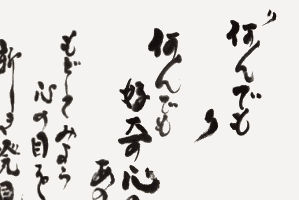 〃
何んでも
何んでも
好奇心の
あの
もどしてみよう
心の目で
新しき発見